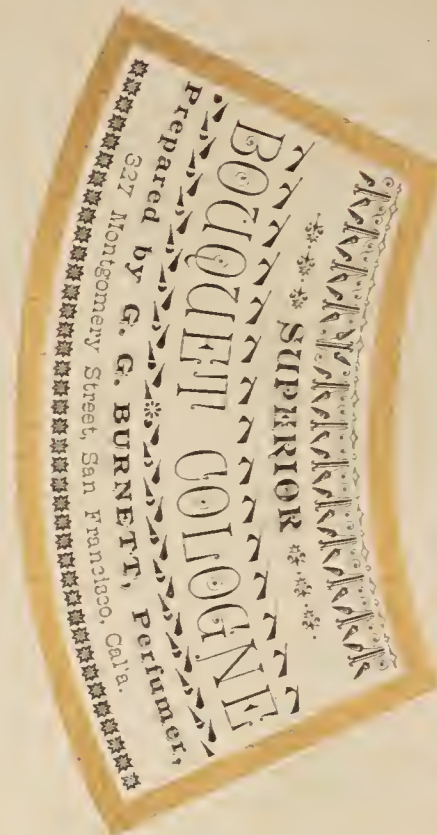 SUPERIOR
BOUQUET COLOGNE
Prepared by G. G. BURNETT, Perfumer,
327 Montgomery Street, San Francisco, Cal'a.